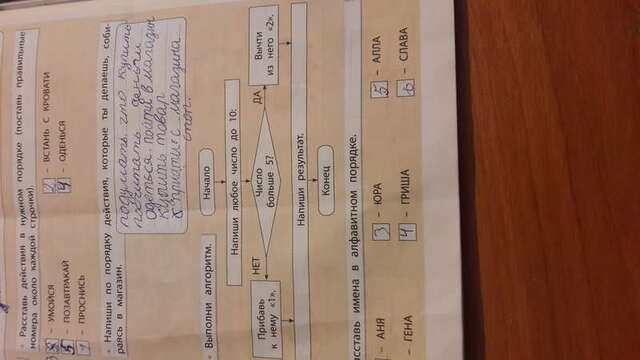 • Расставь действия в нужном порядке (поставь правильные
номера около каждой строчки).
– УМОЙСЯ
– ВСТАНЬ С КРОВАТИ
5 – ПОЗАВТРАКАЙ
4 – ОДЕНЬСЯ
1 – ПРОСНИСЬ
• Напиши по порядку действия, которые ты делаешь, соби-
раясь в магазин.
подумать, что купить
посчитать деньги
одеться, пойти в магазин
купить товар
прийти с магазина
стоп.
• Выполни алгоритм.
Начало
Напиши любое число до 10:
Число
больше 5?
НЕТ
ДА
Прибавь
к нему «1».
Вычти
из него «2».
Напиши результат.
Конец
асставь имена в алфавитном порядке.
– АНЯ
3 – ЮРА
5 – АЛЛА
– ГЕНА
4 – ГРИША
6 – СЛАВА